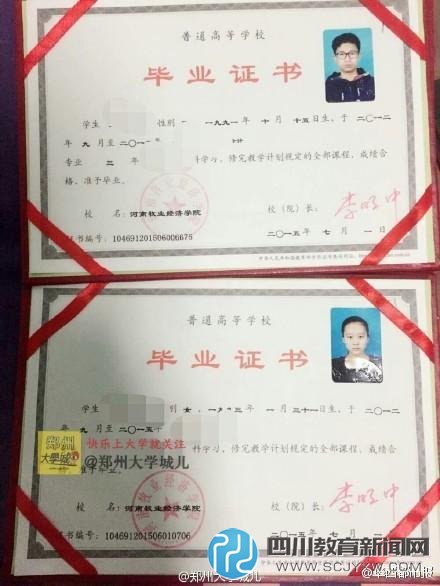 普通高等学校
毕业证书
学生
性别
一九九一年 十月 十五日生，于 二〇一二
年 九月至 二〇一
专业 三 年
科学习，修完教学计划规定的全部课程，成绩合
格，准予毕业。
校 名：河南牧业经济学院
校（院）长：
李明中
证书编号：104691201506006675
二〇一五年 七月 一日
普通高等学校
毕业证书
学生
别 女，一九九三年 一月 三十一日生，于 二〇一二
年 九月至 二〇一五年
科学习，修完教学计划规定的全部课程，成绩合
准予毕业。
郑州
大学城
快乐上大学就关注
@郑州大学城儿
校 名：河南牧业经济学院
校（院）长：
证书编号：104691201506010706
二〇一五年 七月 一日
@郑州大学城儿
四川教育新闻网
WWW.SCJYXW.COM